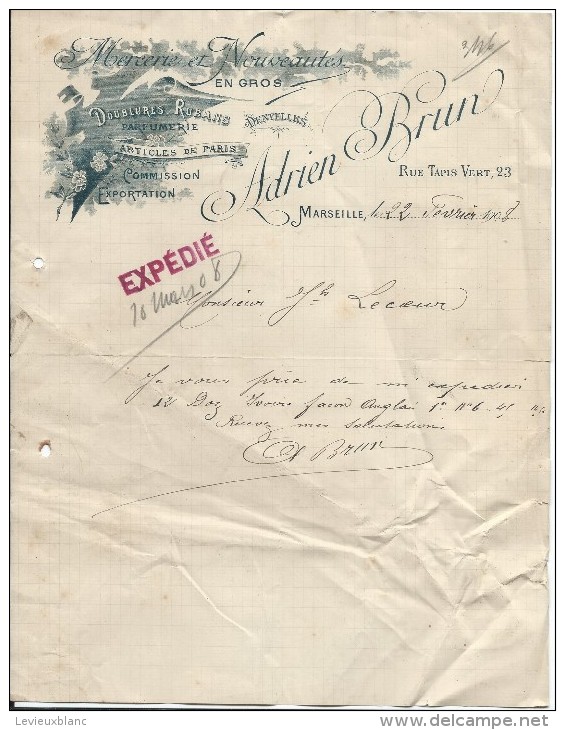 Mercerie et Nouveautés
EN GROS
DOUBLURES RUBANS DENTELLES
PARFUMERIE
ARTICLES DE PARIS
COMMISSION
EXPORTATION
Adrien Brun
RUE TAPIS VERT, 23
MARSEILLE, le 22 Février 1908
EXPÉDIÉ
10 Mars 08
Monsieur Jh Lecœur
Je vous prie de m'expedier
12 Doz Ivoire façon Anglai 1re No 6
Recevez mes salutations
A Brun
Levieuxblanc
delcampe.net